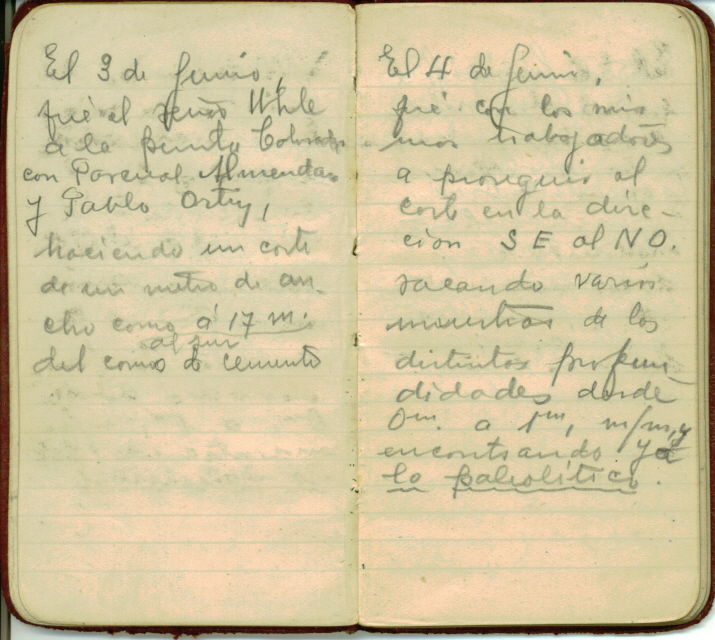 El 3 de Junio,
fué el señor Uhle
a la punta Colorada
con Pascual Almendar
y Pablo Ortiz,
haciendo un corte
de un metro de an-
cho como á 17 m.
al sur
del como de cemento
El 4 de Junio,
fué con los mis
mos trabajadores
a proseguir al
corte en la direc-
cion SE al NO.
sacando varias
muestras de los
distintos profun
didades desde
0m. a 1m, m/m, y
encontrando ya
lo paleolitico.